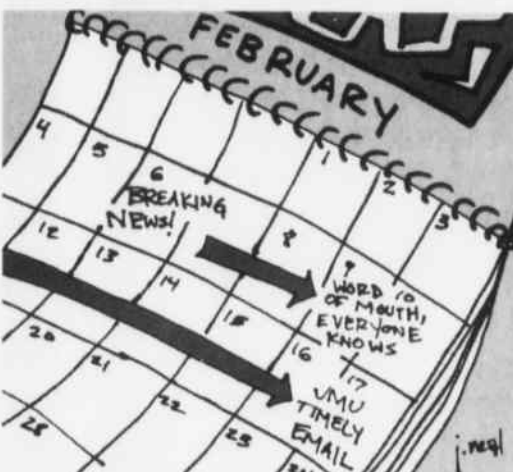 FEBRUARY
1
2
3
4
5
6
BREAKING
NEWS!
8
9
10
WORD
OF MOUTH,
EVERYONE
KNOWS
12
13
14
15
16
17
JMU
TIMELY
EMAIL
20
21
22
23
28
j. neal